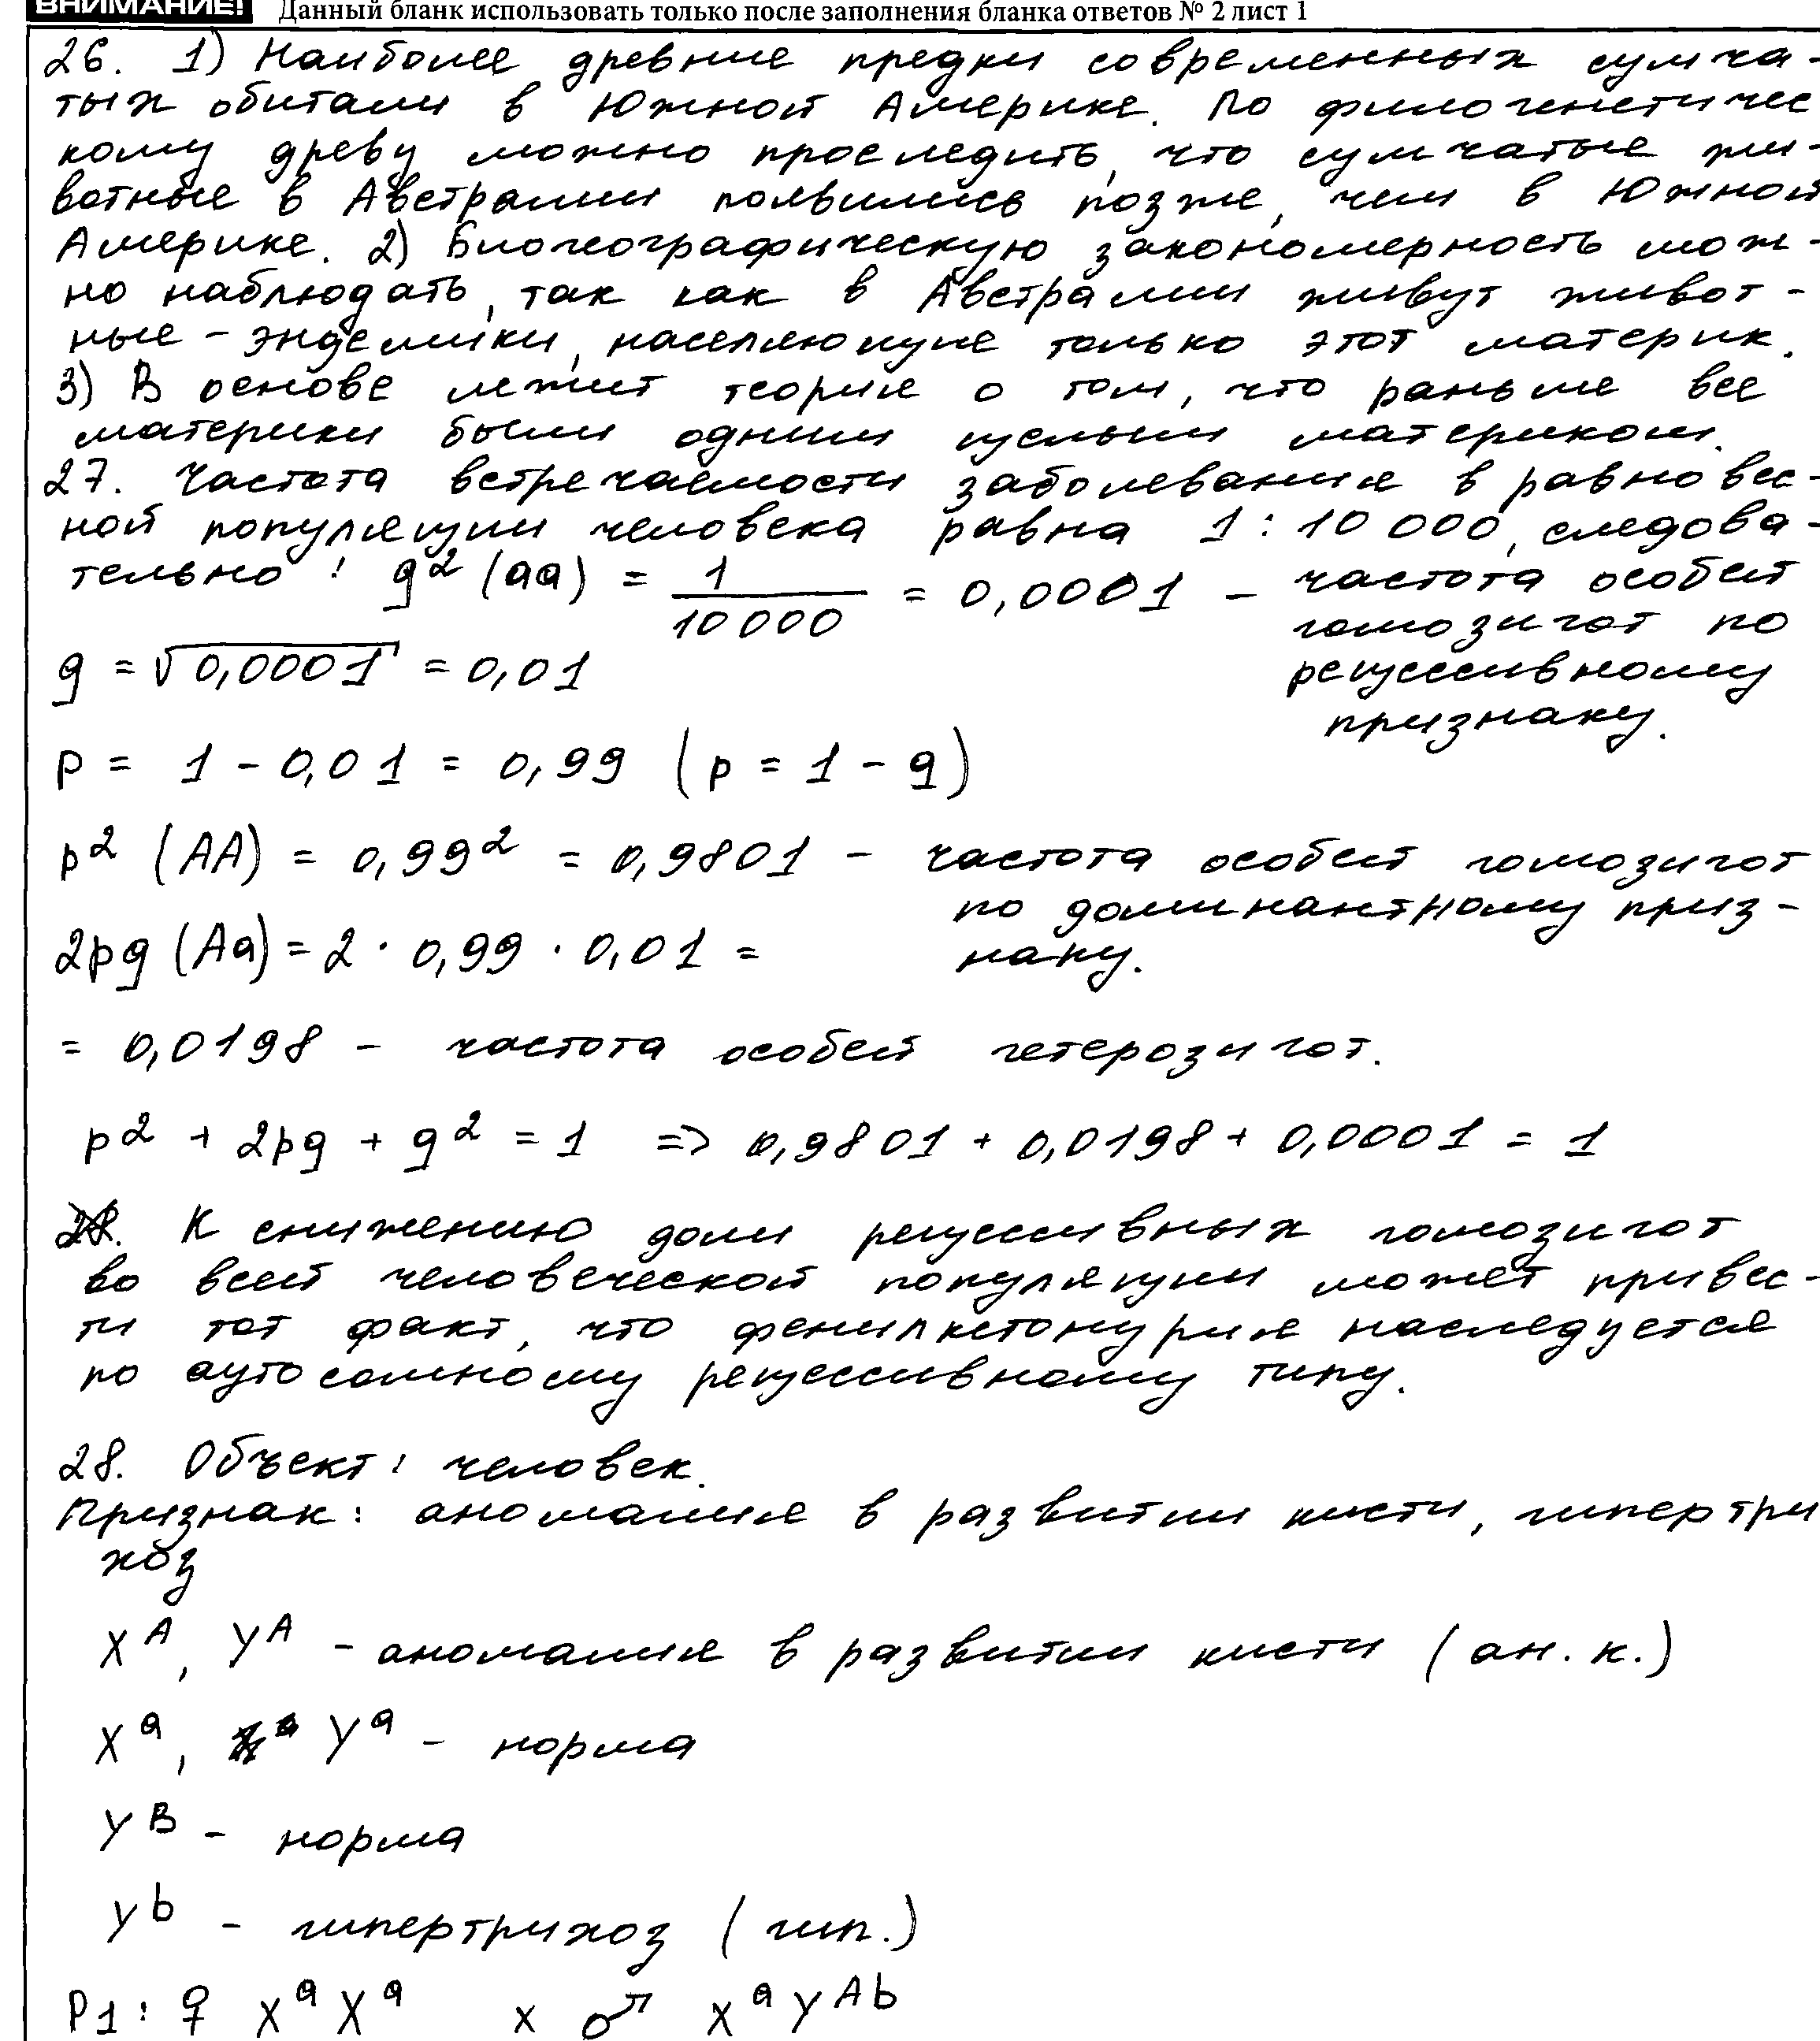 ВНИМАНИЕ! Данный бланк использовать только после заполнения бланка ответов № 2 лист 1
26. 1) Наиболее древние предки современных сумча-
тых обитали в Южной Америке. По филогенетичес
кому древу можно проследить, что сумчатые жи-
вотные в Австралии появились позже, чем в Южной
Америке. 2) Биогеографическую закономерность мож-
но наблюдать, так как в Австралии живут живот-
ные - эндемики, населяющие только этот материк.
3) В основе лежит теория о том, что раньше все
материки были одним целым материком.
27. Частота встречаемости заболевания в равновес-
ной популяции человека равна 1 : 10 000, следова-
тельно : q² (aa) = 1/10 000 = 0,0001 - частота особей
гомозигот по
рецессивному
признаку.
q = √0,0001 = 0,01
p = 1 - 0,01 = 0,99 (p = 1 - q)
p² (AA) = 0,99² = 0,9801 - частота особей гомозигот
по доминантному приз-
наку.
2pq (Aa) = 2 · 0,99 · 0,01 =
= 0,0198 - частота особей гетерозигот.
p² + 2pq + q² = 1 => 0,9801 + 0,0198 + 0,0001 = 1
К снижению доли рецессивных гомозигот
во всей человеческой популяции может привес-
ти тот факт, что фенилкетонурия наследуется
по аутосомному рецессивному типу.
28. Объект : человек.
Признак : аномалия в развитии кисти, гипертри
хоз
X^A, Y^A - аномалия в развитии кисти (ан. к.)
X^a, Y^a - норма
Y^B - норма
Y^b - гипертрихоз (гип.)
P1 : ♀ X^a X^a x ♂ X^a Y^Ab